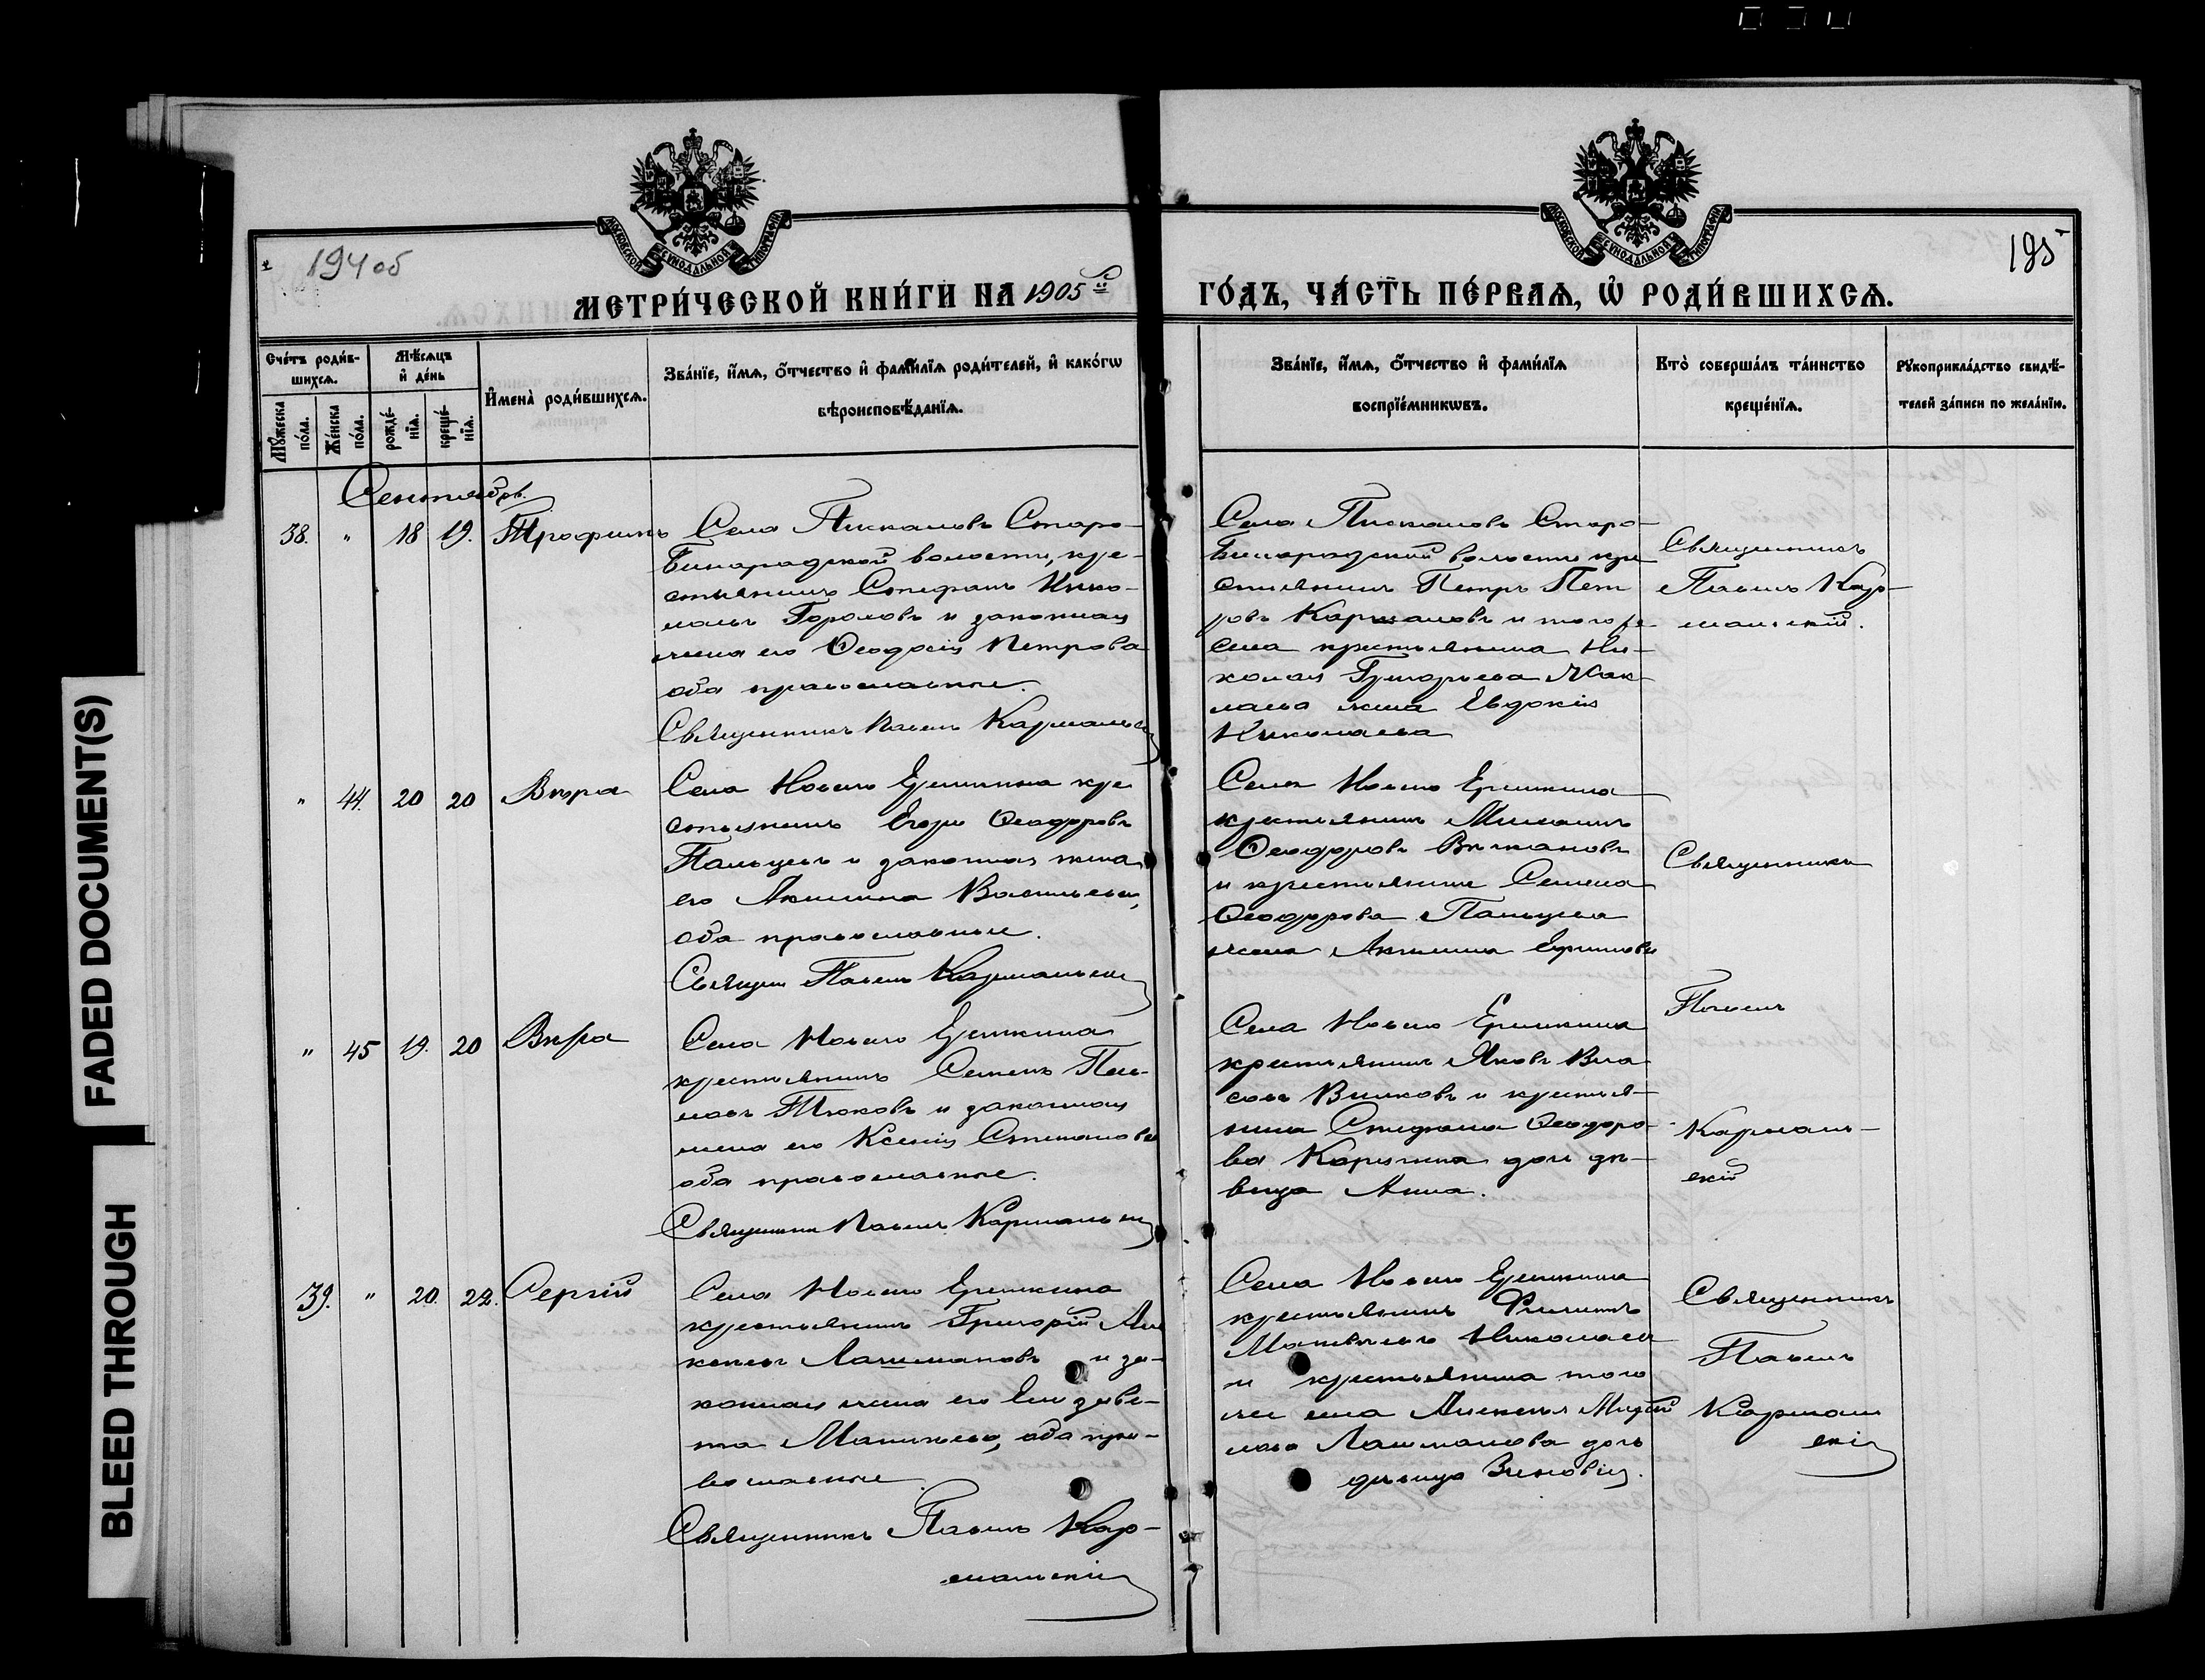 FADED DOCUMENT(S)
BLEED THROUGH
194 об
195
МОСКОВСКОЙ СѴНОДАЛЬНОЙ ТИПОГРАФІИ
МОСКОВСКОЙ СѴНОДАЛЬНОЙ ТИПОГРАФІИ
МЕТРИ́ЧЕСКОЙ КНИ́ГИ НА 1905й
ГО́ДЪ, ЧА́СТЬ ПЕ́РВАѦ, Ѡ҆ РОДИ́ВШИХСѦ.
Сче́тъ роди́в-
шихсѧ.
Мѣ́сѧцъ
и҆ де́нь
Мꙋ́жеска
по́ла.
Же́нска
по́ла.
рожде́-
нїѧ.
креще́-
нїѧ.
И҆мена̀ роди́вшихсѧ.
Зва́нїе, и҆́мѧ, ѻ҆́тчество и҆ фами́лїѧ роди́телей, и҆ како́гѡ
вѣроисповѣ́данїѧ.
Зва́нїе, и҆́мѧ, ѻ҆́тчество и҆ фами́лїѧ
воспрїе́мникѡвъ.
Кто̀ соверша́лъ та́инство
креще́нїѧ.
Рꙋкоприкла́дство свидѣ́-
телей за́писи по жела́нїю.
Сентябрь.
38. " 18 19. Трофимъ
Села Пискаловъ Старо-
Бинарадской волости, кре-
стьянинъ Стефанъ Нико-
лаевъ Гороховъ и законная
жена его Ѳеодосія Петрова
оба православные.
Священникъ Павелъ Кармальскій
Села Пискаловъ Старо-
Бинарадской волости кре
стьянинъ Петръ Пет
ровъ и того же
села крестьянина Ни-
колая Григорьева
жена Евдокія
Николаева
Священникъ
Павелъ Кар-
мальскій.
" 44. 20 20 Вѣра
Села Новаго Еремкина кре
стьянинъ Егоръ Ѳеодоровъ
Пальцевъ и законная жена
его Акилина Васильева,
оба православные.
Священ Павелъ Кармальскій
Села Новаго Еремкина
крестьянинъ
Ѳеодоровъ
и крестьянина Семена
Ѳеодорова Пальцева
жена Акилина
Священникъ
Павелъ
Кармаль-
скій
" 45 19. 20 Вѣра
Села Новаго Еремкина
крестьянинъ Семенъ
Тюковъ и законная
жена его Ксенія Степанова
оба православные.
Священникъ Павелъ Кармальскій
Села Новаго Еремкина
крестьянинъ Яковъ Вла
совъ Вилковъ и крестья-
нина Стефана Ѳеодоро-
ва дочь дѣ-
вица Анна.
39. " 20. 22. Сергій
Села Новаго Еремкина
крестьянинъ Григорій Але
ксѣевъ Лашмановъ и за-
конная жена его Елизаве-
та, оба пра-
вославные.
Священникъ Павелъ Кар-
мальскій
Села Новаго Еремкина
крестьянинъ Филиппъ
Матвѣевъ Николаевъ
и крестьянина того
же села Алексѣя
Лашманова дочь
дѣвица Зиновія.
Священникъ
Павелъ
Кармаль
скій